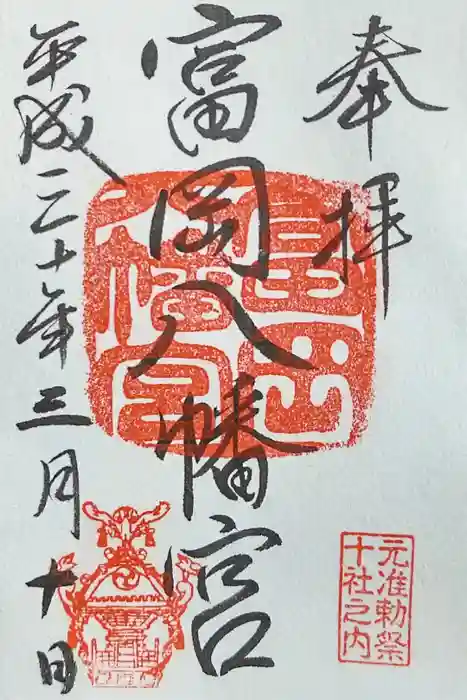 奉拝
富岡八幡宮
平成三十年三月十日
富岡八幡宮
元准勅祭
十社之内